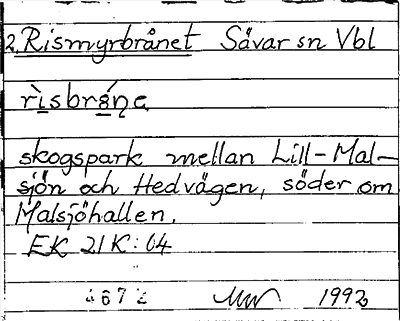 2. Rismyrbrånet Sävar sn Vbl
skogspark mellan Lill-Mal-
sjön och Hedvägen, söder om
Malsjöhallen.
EK 21K:04
1992